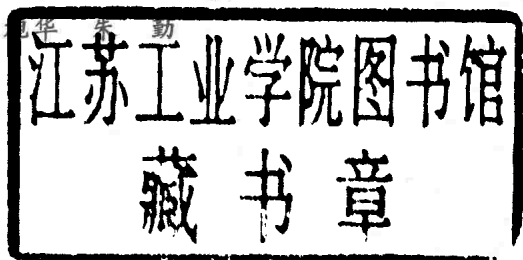 华 朱 勤
江苏工业学院图书馆
藏书章